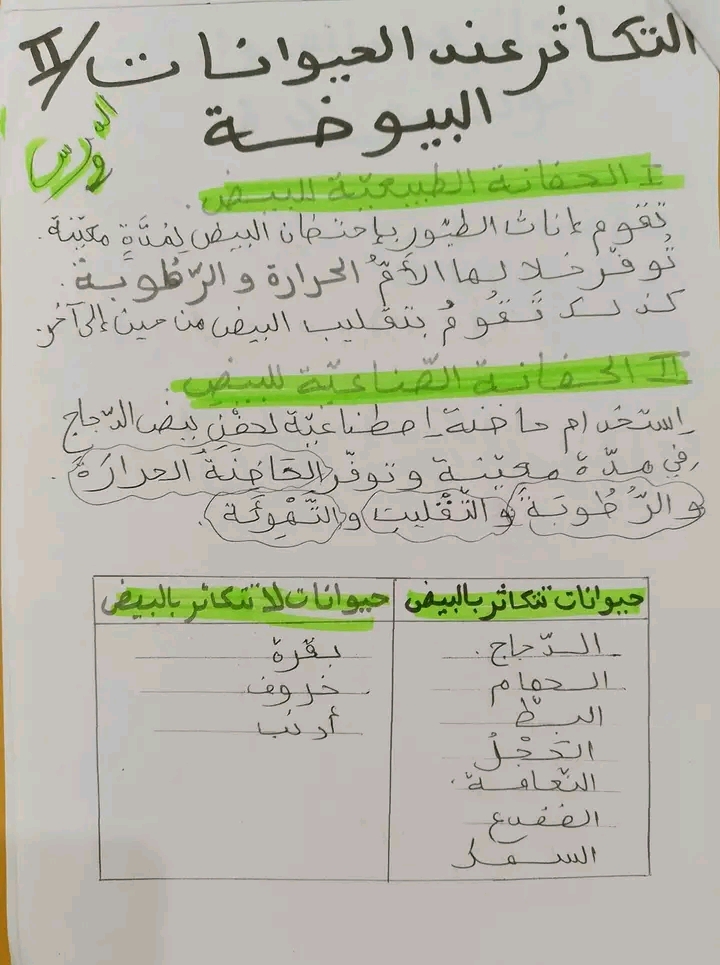 التكاثر عند الحيوانات /II
البيوضة
الدرس
I الحضانة الطبيعيّة للبيض.
تقوم إناث الطيّور بإحتضان البيض لمُدَّةٍ معيّنة.
تُوفّر خلالها الأمُّ الحرارة و الرّطوبة.
كذلك تَقُومُ بتقليب البيض من حين إلى آخر.
II الحضانة الصّناعيّة للبيض.
إستخدام حاضنة إصطناعيّة لحضْن بيض الدّجاج
في مدّة معيّنة و توفّر الحَاضِنَةُ الحرارَةَ
و الرُّطُوبَةَ والتّقْليبَ والتَّهْوِئَة.
حيوانات تتكاثر بالبيض
حيوانات لا تتكاثر بالبيض
الدّجاج.
بقرة
الحمام
خروف
البطّ
أرنب
الحَجْلُ
النّعامة.
الضفدع
السمك